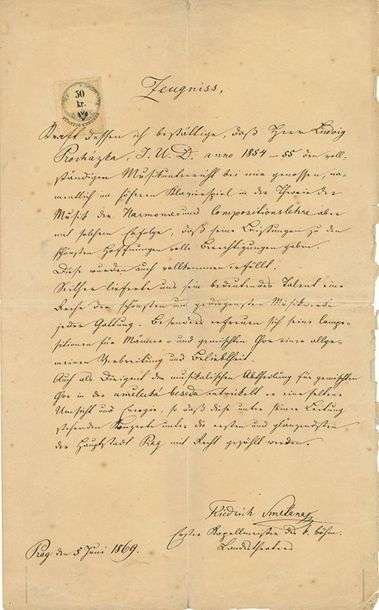 50
kr.
Zeugniss.
Kraft dessen ich bestättige, daß Herr Ludwig
Procházka, J. U. D. anno 1854–55 den voll-
ständigen Musikunterricht bei mir genossen, na-
mentlich im höheren Klavierspiel in der Theorie der
Musik der Harmonie und Compositionslehre aber
mit solchem Erfolge, daß seine Leistungen zu den
schönsten Hoffnungen volle Berechtigung gaben.
Diese wurden auch vollkommen erfüllt.
Seither lieferte uns sein bedeutendes Talent eine
Reihe der schönsten und gediegensten Musikwerke
jeder Gattung. Besonders erfreuen sich seine Compo-
sitionen für Männer- und gemischten Chor eine allge-
meine Verbreitung und Beliebtheit.
Auch als Dirigent der musikalischen Abtheilung für gemischten
Chor in der umělecká beseda entwickelt er eine seltene
Umsicht und Energie, so daß diese unter seiner Leitung
stehenden Konzerte unter die ersten und glänzendsten
der Hauptstadt Prag mit Recht gezählt werden.
Friedrich Smetana
Erster Kapellmeister des k. böhm.
Landestheaters
Prag den 5 Juni 1869.